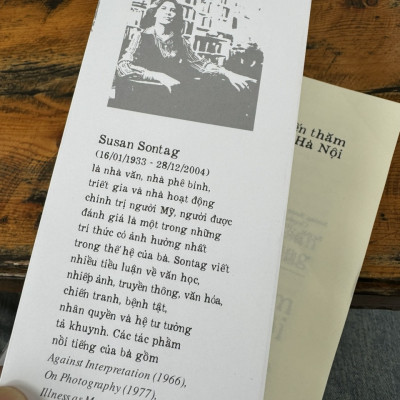 Susan Sontag
(16/01/1933 - 28/12/2004)
là nhà văn, nhà phê bình,
triết gia và nhà hoạt động
chính trị người Mỹ, người được
đánh giá là một trong những
trí thức có ảnh hưởng nhất
trong thế hệ của bà. Sontag viết
nhiều tiểu luận về văn học,
nhiếp ảnh, truyền thông, văn hóa,
chiến tranh, bệnh tật,
nhân quyền và hệ tư tưởng
tả khuynh. Các tác phẩm
nổi tiếng của bà gồm
Against Interpretation (1966),
On Photography (1977),
Illness as
thăm
Hà Nội